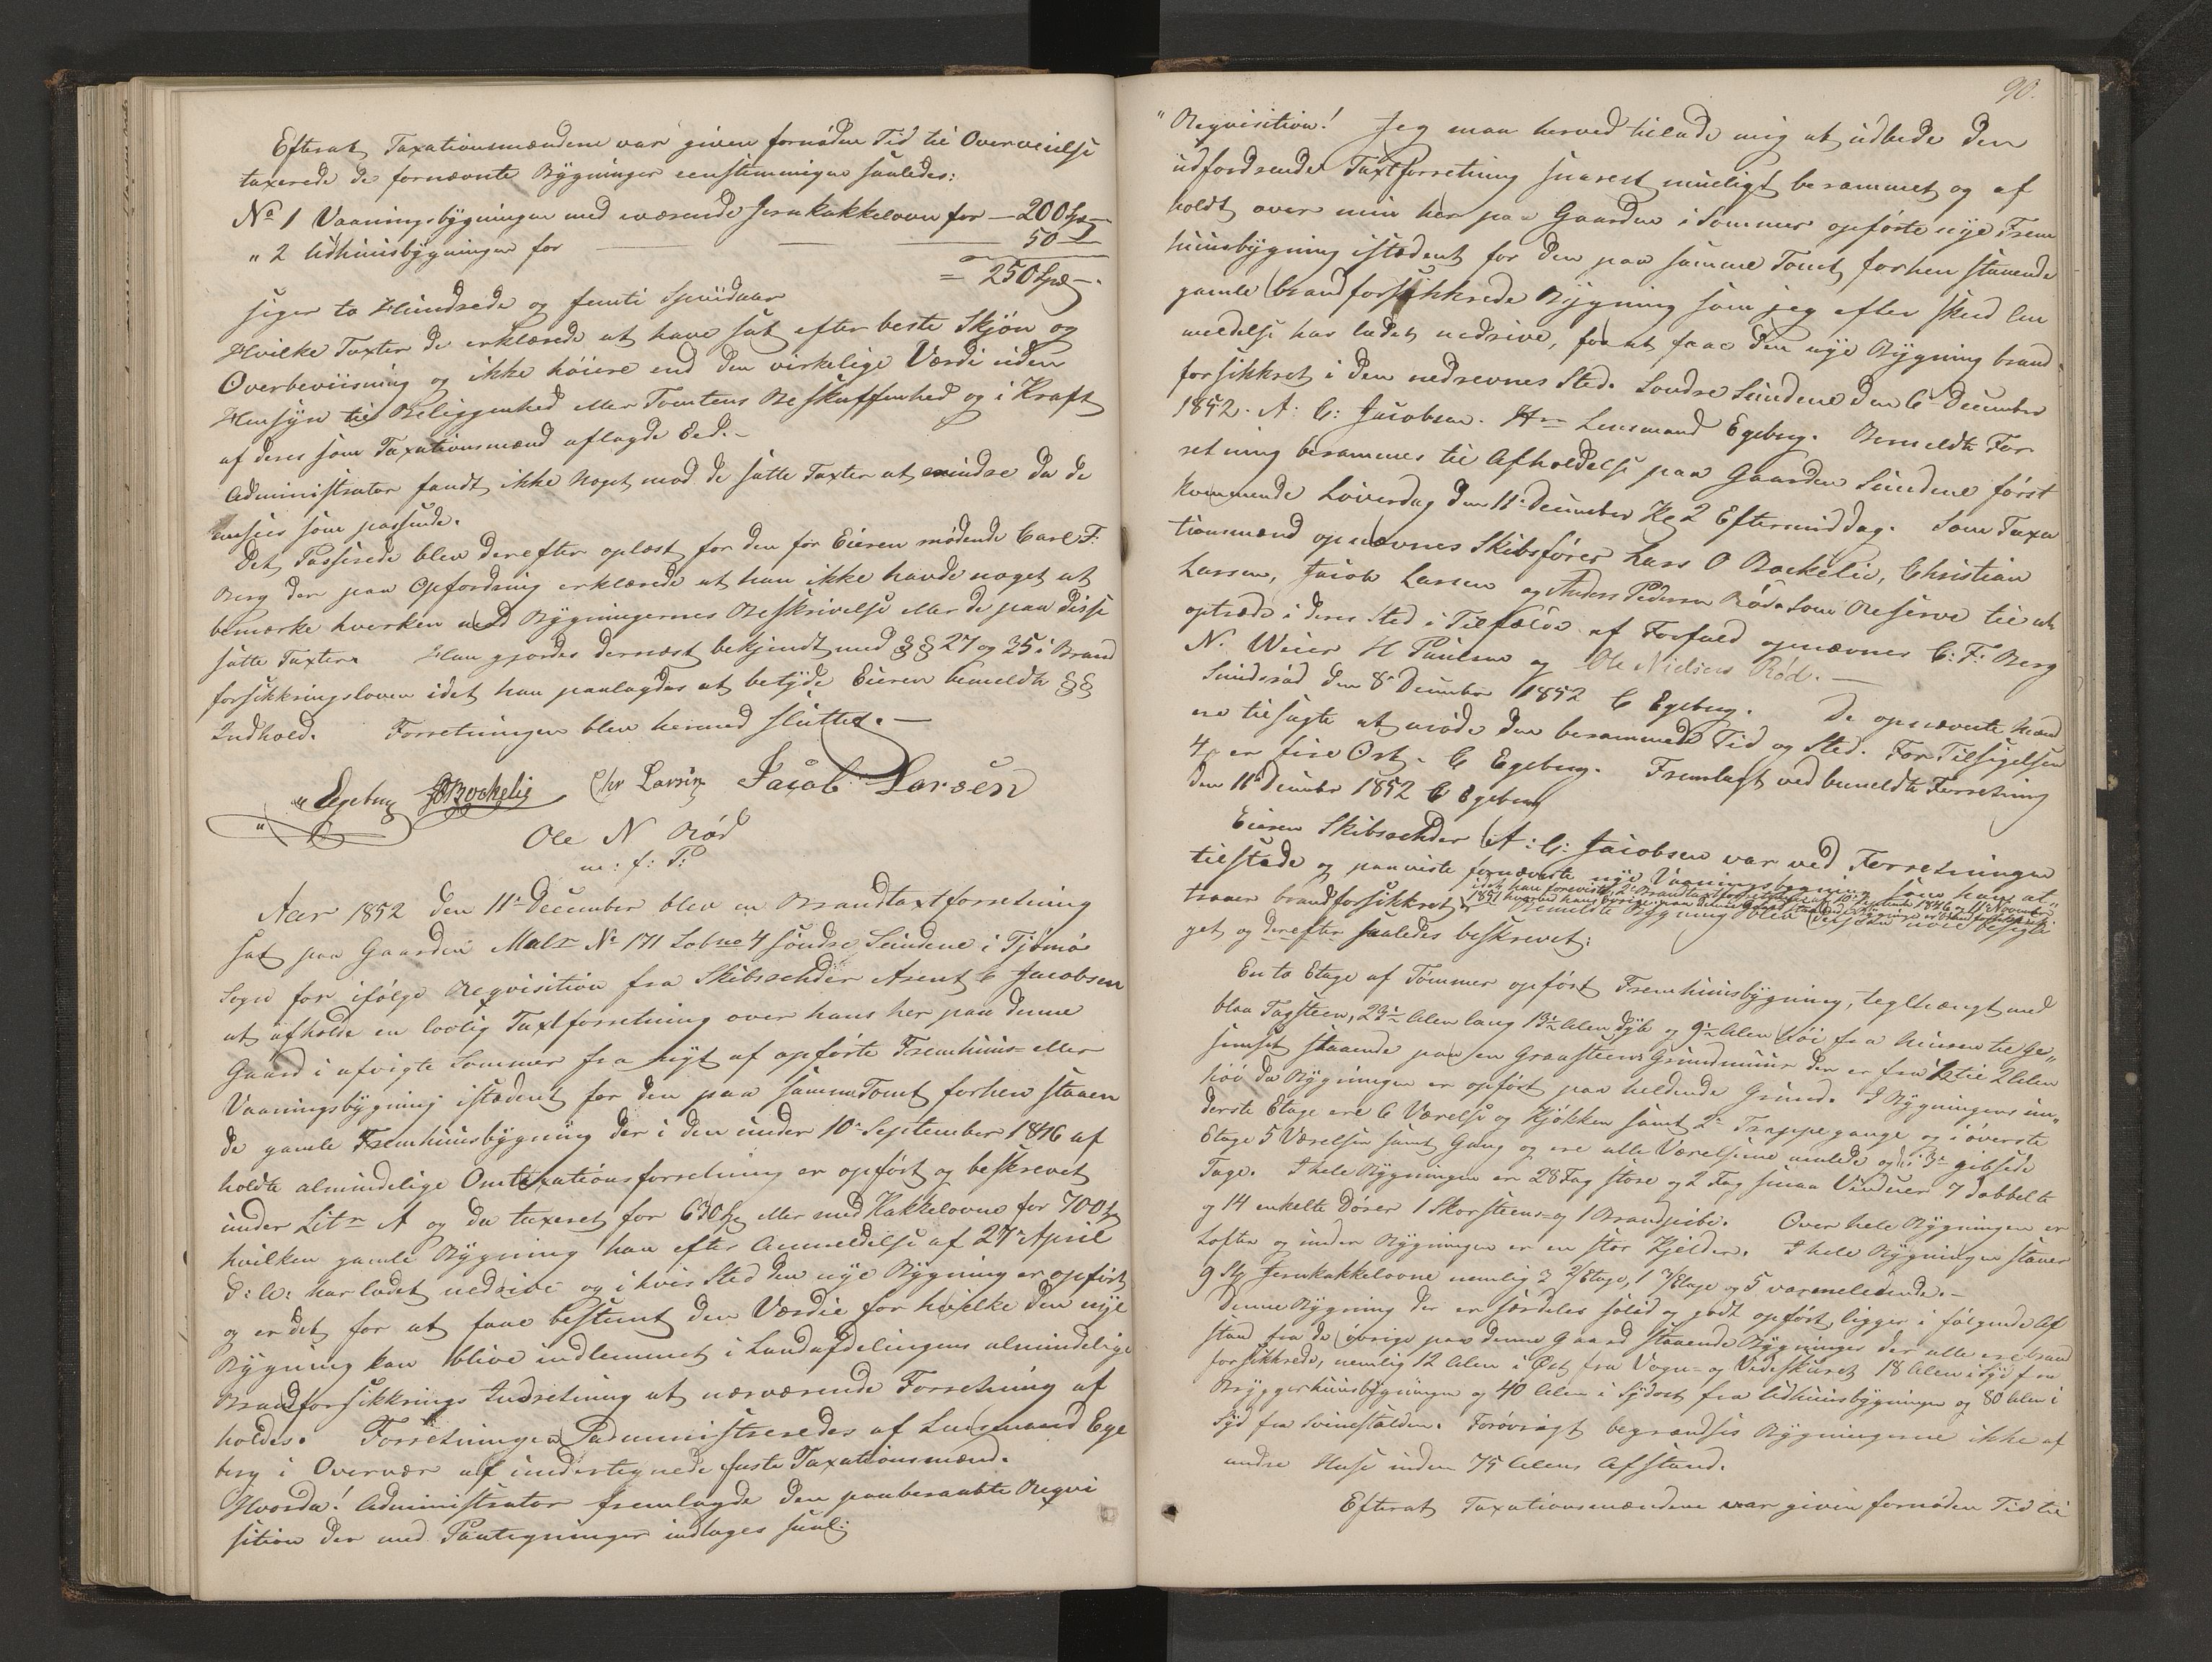 Efterat Taxationsmændene var given fornöden Tid til Overveielse
taxerede de fornævnte Bygninger eenstemmigen saaledes:
No 1 Vaaningsbygningen med værende Jernkakkelovn for — 200 Spd —
" 2 Udhuusbygningen for — 50 —
= 250 Spd —
siger to Hundrede og femti Speciedaler
Hvilke Taxter de erklærede at have sat efter beste Skjön og
Overbeviisning og ikke höiere end den virkelige Værdi uden
Hensyn til Beliggenhed eller Tomtens Beskaffenhed og i Kraft
af deres som Taxationsmænd aflagde Eed.-
Administrator fandt ikke Noget mod de satte Taxter at erindre da de
ansees som passende.
Det Passerede blev derefter oplæst for den for Eieren mödende Carl F:
Berg der paa Opfordring erklærede at han ikke havde noget at
bemærke hverken ved Bygningernes Beskrivelse eller de paa disse
satte Taxter. Han gjordes dernæst bekjendt med §§ 27 og 35 i Brand
forsikkringsloven idet han paalagdes at betyde Eieren bemeldte §§
Indhold. Forretningen blev hermed sluttet.—
C Egeberg LOBockelie Chr Larsen Jacob Larsen
Ole N Röd
m: f: P:
Aar 1852 den 11te December blev en Brandtaxtforretning
sat paa Gaarden Matr No 171 Lobno 4 söndre Sundene i Tjömö
Sogn for ifölge Reqvisition fra Skibsrehder Arent C Jacobsen
at afholde en lovlig Taxtforretning over hans her paa denne
Gaard i afvigte Sommer fra nyt af opförte Fremhuus- eller
Vaaningsbygning istedent for den paa samme Tomt forhen staaen
de gamle Fremhuusbygning der i den under 10de September 1846 af
holdte almindelige Omtaxationsforretning er opfört og beskrevet
under Litr A og da taxeret for 630 Spd eller med Kakkelovne for 700 Spd
hvilken gamle Bygning han efter Anmeldelse af 27de April
d: A: har ladet nedrive og i hvis Sted den nye Bygning er opfört
og er det for at faae bestemt den Værdie for hvilke den nye
Bygning kan blive indlemmet i Landafdelingens almindelige
Brandforsikkrings Indretning at nærværende Forretning af
holdes. Forretningen administreredes af Lensmand Ege
berg i Overvær af undertegnede faste Taxationsmænd.
Hvorda! Administrator fremlagde den paaberaabte Reqvi
sition der med Paategninger indtages saal:
90.
"Reqvisition! Jeg maa herved tilade mig at udbede den
udfordrende Taxtforretning snarest mueligt berammet og af
holdt over min her paa Gaarden i Sommer opförte nye Frem
huusbygning istedent for den paa samme Tomt forhen staaende
gamle brandforsikkrede Bygning som jeg efter skeed An
meldelse har ladet nedrive, for at faae den nye Bygning brand
forsikkret i den nedrevnes Sted. Söndre Sundene den 6 December
1852. A: C: Jacobsen. Hr Lensmand Egeberg. Bemeldte For
retning berammes til Afholdelse paa Gaarden Sundene först
kommende Löverdag den 11te December Kl 2 Eftermiddag. Som Taxa
tionsmænd opnævnes Skibsförer Lars O Bockelie, Christian
Larsen, Jacob Larsen og Anders Pedersen Röd. Som Reserve til at
optræde i deres Sted i Tilfælde af Forfald opnævnes C: F: Berg
N. Weier H Paulsen og Ole Nielsen Röd.—
Sunderöd den 8de December 1852 C Egeberg. De opnævnte Mænd
ere tilsagte at möde den berammede Tid og Sted. For Tilsigelsen
4/ er fire Ort. C Egeberg. Fremlagt ved bemeldte Forretning
den 11te December 1852 C Egeberg
Eieren Skibsrehder A: C: Jacobsen var ved Forretningen
tilstede og paaviste fornævnte nye Vaaningsbygning som han at"
idet han foreviste 2de Brandtaxtforretninger af 10de September 1846 og 11te November
1851 hvorved hans övrige paa denne Gaard staaende Bygninger er brandforsikkrede.
traaer brandforsikkret. Bemeldte Bygning blev dernæst nöie besigti
get og derefter saaledes beskrevet:
En to Etage af Tömmer opfört Fremhuusbygning, teglhængt med
blaa Tagsteen, 23½ Alen lang 13½ Alen dyb og 9½ Alen höi fra Muren til Ge„
simset staaende paa en Graasteens Grundmuur der er fra ½ til 2 Alen
höi da Bygningen er opfört paa heldende Grund. I Bygningens un„
derste Etage ere 6 Værelse og Kjökken samt 2de Trappegange og i överste
Etage 5 Værelser samt Gang og ere alle Værelserne malede og i 3de gibsede
Tage. I hele Bygningen er 28 Fag store og 2 Fag smaa Vinduer 7 dobbelte
og 14 enkelte Dörer 1 Skorsteens- og 1 Brandpibe. Over hele Bygningen er
Lofter og under Bygningen er en stor Kjelder. I hele Bygningen staaer
9 Stk Jernkakkelovne nemlig 3 2/Etage, 1 3/Etage og 5 varmeledende.—
Denne Bygning der er særdeles solid og godt opfört, ligger i fölgende Af
stand fra de övrige paa denne Gaard staaende Bygninger der alle ere brand
forsikkrede, nemlig 12 Alen i Öst fra Vogn- og Vedeskuret 18 Alen i Syd fra
Bryggerhuusbygningen og 40 Alen i Sydost fra Udhuusbygningen og 80 Alen i
Syd fra Svinestalden. Forövrigt begrændses Bygningerne ikke af
andre Huse inden 75 Alens Afstand.
Efterat Taxationsmændene var given fornöden Tid til